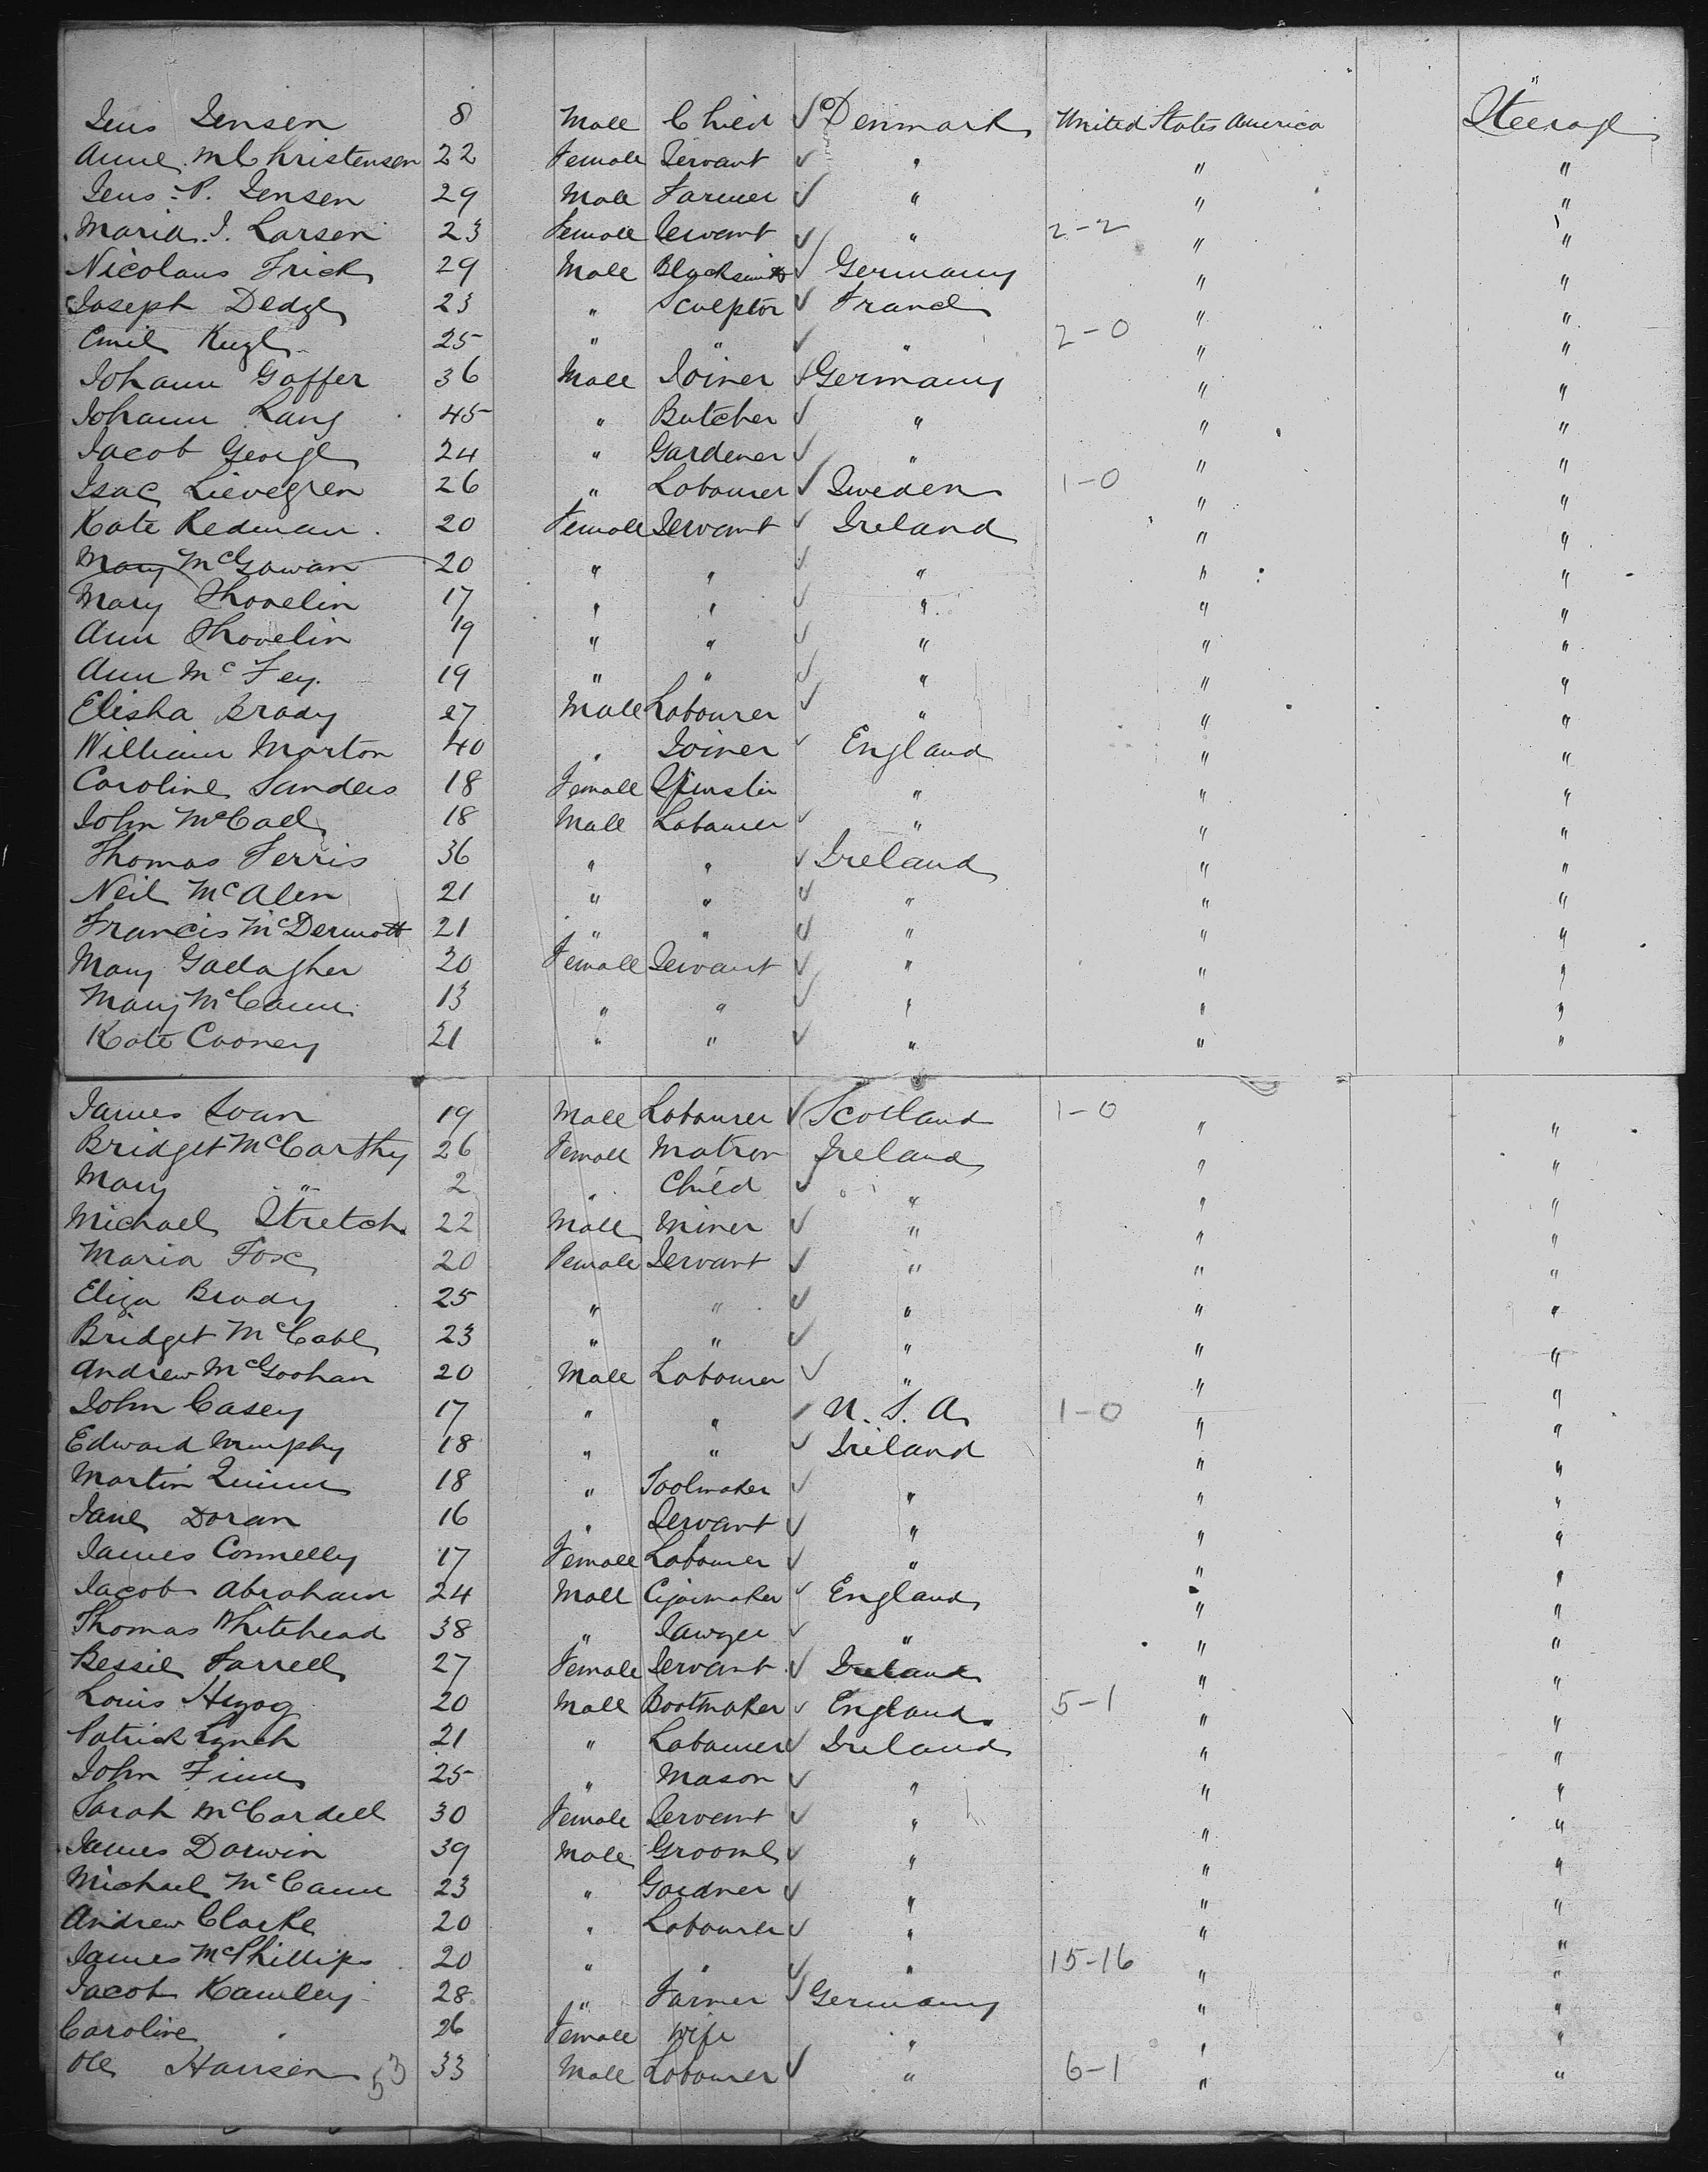 "
Jens Jensen 8 Male Child ✓ Denmark United States America Steerage
Anne M Christensen 22 Female Servant ✓ " " "
Jens P. Jensen 29 Male Farmer ✓ " " "
Maria J. Larsen 23 Female Servant ✓ " 2-2 " "
Nicolaus Frick 29 Male Blacksmith ✓ Germany " "
Joseph Dedge 23 " Sculptor ✓ France " "
Emil Kugle 25 " " ✓ " 2-0 " "
Johann Gaffer 36 Male Joiner ✓ Germany " "
Johann Lang 45 " Butcher ✓ " " "
Jacob George 24 " Gardener ✓ " " "
Isac Lievegren 26 " Labourer ✓ Sweden 1-0 " "
Kate Redman 20 Female Servant ✓ Ireland " "
Mary McGowan 20 " " ✓ " " "
Mary Shovelin 17 " " ✓ " " "
Ann Shovelin 19 " " ✓ " " "
Ann McFey 19 " " ✓ " " "
Elisha Brady 27 Male Labourer ✓ " " "
William Morton 40 " Joiner ✓ England " "
Caroline Sanders 18 Female Spinster " " "
John McCall 18 Male Labourer ✓ " " "
Thomas Ferris 36 " " ✓ Ireland " "
Neil McAlen 21 " " ✓ " " "
Francis McDermott 21 " " ✓ " " "
Mary Gallagher 20 Female Servant ✓ " " "
Mary McCann 13 " " ✓ " " "
Kate Cooney 21 " " ✓ " " "
James Loan 19 Male Labourer ✓ Scotland 1-0 " "
Bridget McCarthy 26 Female Matron Ireland " "
Mary " 2 " Child ✓ " " "
Michael Stretch 22 Male Miner ✓ " " "
Maria Fox 20 Female Servant ✓ " " "
Eliza Brady 25 " " ✓ " " "
Bridget McCabe 23 " " ✓ " " "
Andrew McGoohan 20 Male Labourer ✓ " " "
John Casey 17 " " ✓ U. S. A. 1-0 " "
Edward Murphy 18 " " ✓ Ireland " "
Martin Quinn 18 " Toolmaker ✓ " " "
Jane Doran 16 " Servant ✓ " " "
James Connelly 17 Female Labourer ✓ " " "
Jacob Abraham 24 Male Cigarmaker ✓ England " "
Thomas Whitehead 38 " Sawyer ✓ " " "
Bessie Farrell 27 Female Servant ✓ Ireland " "
Louis Herzog 20 Male Bootmaker ✓ England 5-1 " "
Patrick Lynch 21 " Labourer ✓ Ireland " "
John Finn 25 " Mason ✓ " " "
Sarah McCardell 30 Female Servant ✓ " " "
James Darwin 39 Male Groom ✓ " " "
Michael McCann 23 " Gardner ✓ " " "
Andrew Clarke 20 " Labourer ✓ " " "
James McPhillips 20 " " ✓ " 15-16 " "
Jacob Kamley 28 " Farmer ✓ Germany " "
Caroline " 26 Female Wife " " "
Ole Hansen 53 33 Male Labourer ✓ " 6-1 " "